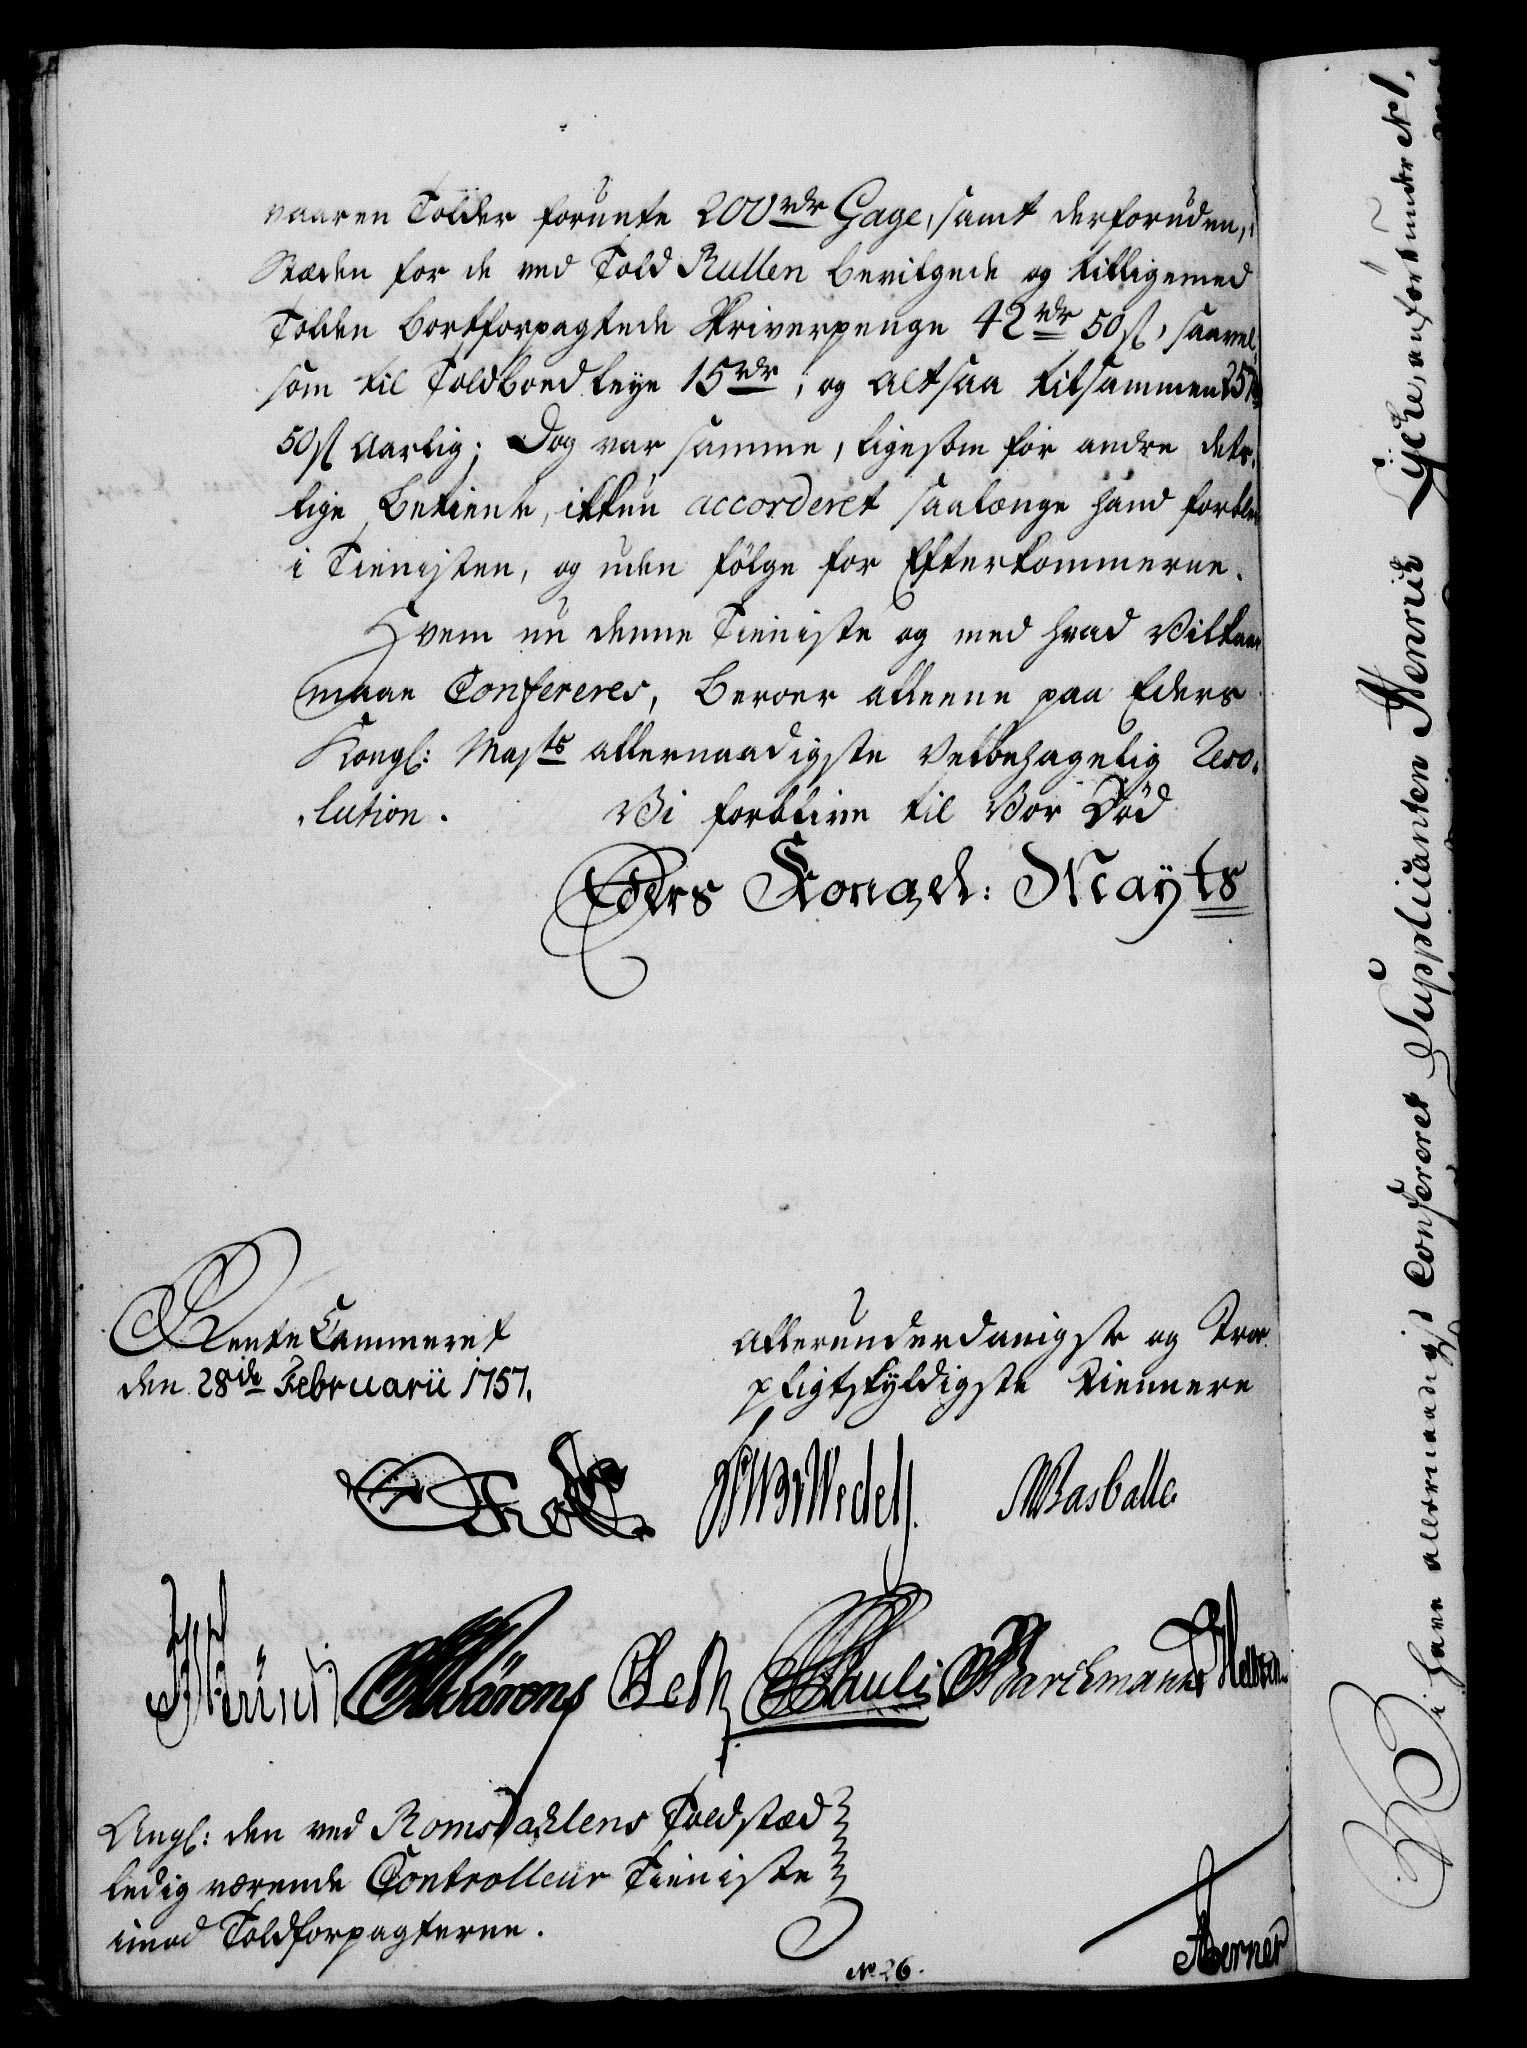 vaaren Tolder forunte 200 rdr Gage, samt derforuden, i
Stæden for de ved Told Rullen bevilgede og tilligemed
Tolden bortforpagtede Skriverpenge 42 rdr 50 sl, saavel
som til Toldboed leye 15 rdr, og altsaa tilsammen 257
50 sl aarlig; Dog var samme, ligesom før andre des-
lige Betiente, ikkun accorderet saalænge hand forblev
i Tienisten, og uden følge for Efterkommerne.
Hvem nu denne Tieniste og med hvad Vilkaar
maae Confereres, beroer alleene paa Eders
Kongl: Majts allernaadigste Velbehagelig Reso-
lution. Vi forblive til Vor Død
Eders Kongel: Mayts
Rente Cammeret
den 28de Februarii 1757.
allerunderdanigste og Troe
pligtskyldigste Tiennere
Holck. Wedell. Rasballe
Münch Mörens Beck Pauli Barchmann
Angl: den ved Romsdahlens Toldstæd
ledig værende Controlleur Tieniste
imod Toldforpagterne.
Berner
No 26.
Vi have allernaadigst Confereret Supplicanten Henrich Lycke, anført under No 1,